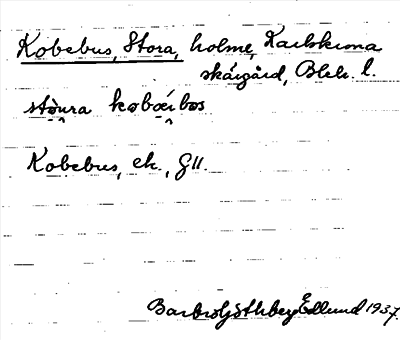 Kobebus, Stora, holme, Karlskrona
skärgård, Blek. l.
stòu̯ra kobœ́i̯bos
Kobebus, ek., G11.
Barbro Götherg Edlund 1937.